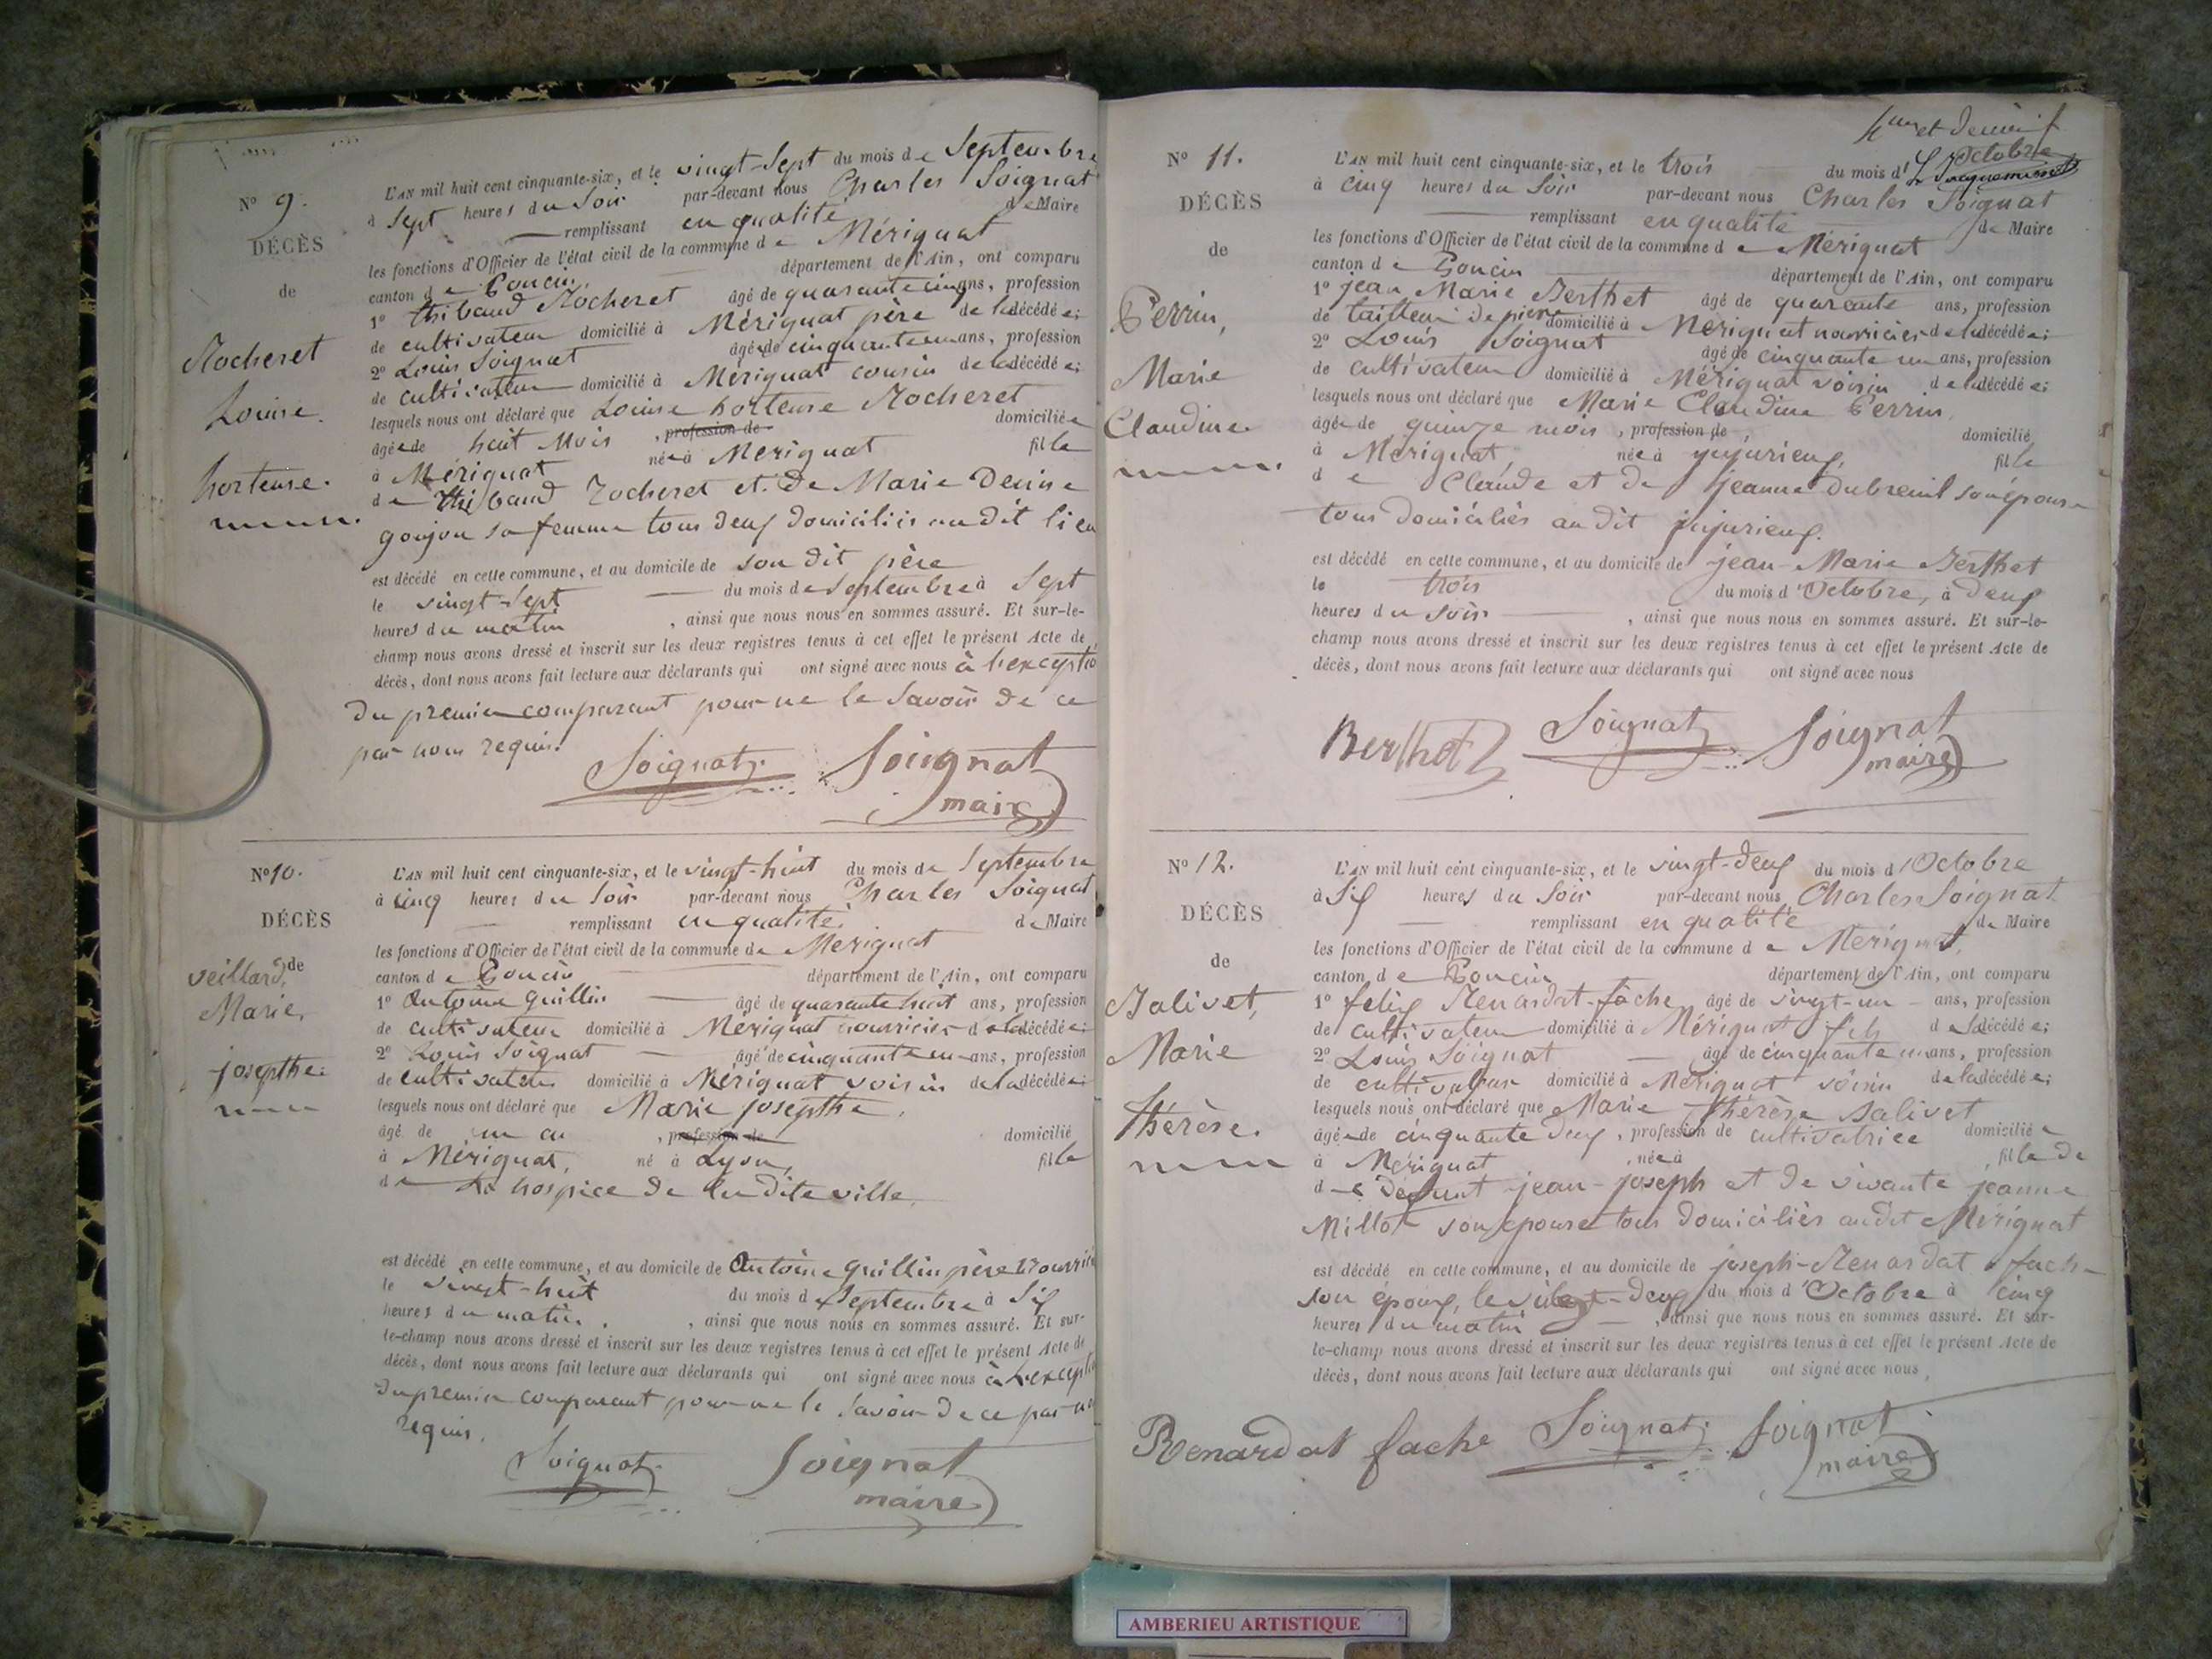 N° 9.
DÉCÈS
de
Rocheret
Louise
hortense.
L'AN mil huit cent cinquante-six, et le vingt-Sept du mois de Septembre
à Sept heures du Soir par-devant nous Charles Soignat
remplissant en qualité de Maire
les fonctions d'Officier de l'état civil de la commune de Mérignat
canton de Poncin département de l'Ain, ont comparu
1° thibaud Rocheret âgé de quarante cinq ans, profession
de cultivateur domicilié à Mérignat père de la décédée;
2° Louis Soignat âgé de cinquante un ans, profession
de cultivateur domicilié à Mérignat cousin de la décédée;
lesquels nous ont déclaré que Louise hortense Rocheret
âgée de huit Mois , profession de domiciliée
à Mérignat née à Merignat fille
de thibaud Rocheret et de Marie Denise
goujon sa femme tous deux domiciliés au dit lieu
est décédé en cette commune, et au domicile de son dit père
le vingt-Sept du mois de Septembre à Sept
heures du matin , ainsi que nous nous en sommes assuré. Et sur-le-
champ nous avons dressé et inscrit sur les deux registres tenus à cet effet le présent Acte de
décès, dont nous avons fait lecture aux déclarants qui ont signé avec nous à l'exceptio
du premier comparant pour ne le Savoir de ce
par nous requis.
Soignat Soignat
maire
N° 10.
DÉCÈS
de
veillard,
Marie,
josepthe.
L'AN mil huit cent cinquante-six, et le vingt-huit du mois de Septembre
à cinq heures du Soir par-devant nous Charles Soignat
remplissant en qualité de Maire
les fonctions d'Officier de l'état civil de la commune de Merignat
canton de Poncin département de l'Ain, ont comparu
1° Antoine Guillin âgé de quarante huit ans, profession
de cultivateur domicilié à Mérignat nourricier de la décédée;
2° Louis Soignat âgé de cinquante un ans, profession
de cultivateur domicilié à Mérignat voisin de la décédée;
lesquels nous ont déclaré que Marie josepthe,
âgé de un an , profession de domicilié
à Mérignat, né à Lyon, fille
de La hospice de la dite ville.
est décédé en cette commune, et au domicile de Antoine Guillin père Nourricie
le vingt-huit du mois de Septembre à Six
heures du matin , ainsi que nous nous en sommes assuré. Et sur-
le-champ nous avons dressé et inscrit sur les deux registres tenus à cet effet le présent Acte de
décès, dont nous avons fait lecture aux déclarants qui ont signé avec nous à l'excep
du premier comparant pour ne le Savoir de ce par
requis.
Soignat Soignat
maire
et dernier f
N° 11.
DÉCÈS
de
Perrin,
Marie
Claudine
L'AN mil huit cent cinquante-six, et le trois du mois d'Octobre
à cinq heures du Soir par-devant nous Charles Soignat
remplissant en qualité de Maire
les fonctions d'Officier de l'état civil de la commune de Mérignat
canton de Poncin département de l'Ain, ont comparu
1° jean Marie Berthet âgé de quarante ans, profession
de tailleur de pierre domicilié à Mérignat nourricier de la décédée;
2° Louis Soignat âgé de cinquante un ans, profession
de cultivateur domicilié à Mérignat voisin de la décédée;
lesquels nous ont déclaré que Marie Claudine Perrin,
âgée de quinze mois , profession de domicilié
à Mérignat née à jujurieux, fille
de Claude et de jeanne dubreuil son épouse
tous domiciliés au dit jujurieux.
est décédé en cette commune, et au domicile de jean-Marie Berthet
le trois du mois d'Octobre, à deux
heures du soir , ainsi que nous nous en sommes assuré. Et sur-le-
champ nous avons dressé et inscrit sur les deux registres tenus à cet effet le présent Acte de
décès, dont nous avons fait lecture aux déclarants qui ont signé avec nous
Berthet Soignat Soignat
maire
N° 12.
DÉCÈS
de
Salivet,
Marie
thérèse.
L'AN mil huit cent cinquante-six, et le vingt-deux du mois d'Octobre
à Six heures du Soir par-devant nous Charles Soignat
remplissant en qualité de Maire
les fonctions d'Officier de l'état civil de la commune de Mérignat,
canton de Poncin département de l'Ain, ont comparu
1° felix Renardat-fache âgé de vingt-un ans, profession
de cultivateur domicilié à Mérignat fils de la décédée;
2° Louis Soignat âgé de cinquante un ans, profession
de cultivateur domicilié à Mérignat voisin de la décédée;
lesquels nous ont déclaré que Marie thérèse salivet
âgée de cinquante deux , profession de cultivatrice domiciliée
à Mérignat , née à fille de
de défunt jean-joseph et de vivante jeanne
Millot son épouse tous domiciliés au dit Mérignat
est décédé en cette commune, et au domicile de joseph-Renardat fache
son époux, le vingt-deux du mois d'Octobre à cinq
heures du matin , ainsi que nous nous en sommes assuré. Et sur-
le-champ nous avons dressé et inscrit sur les deux registres tenus à cet effet le présent Acte de
décès, dont nous avons fait lecture aux déclarants qui ont signé avec nous,
Renardat fache Soignat Soignat
maire
AMBERIEU ARTISTIQUE